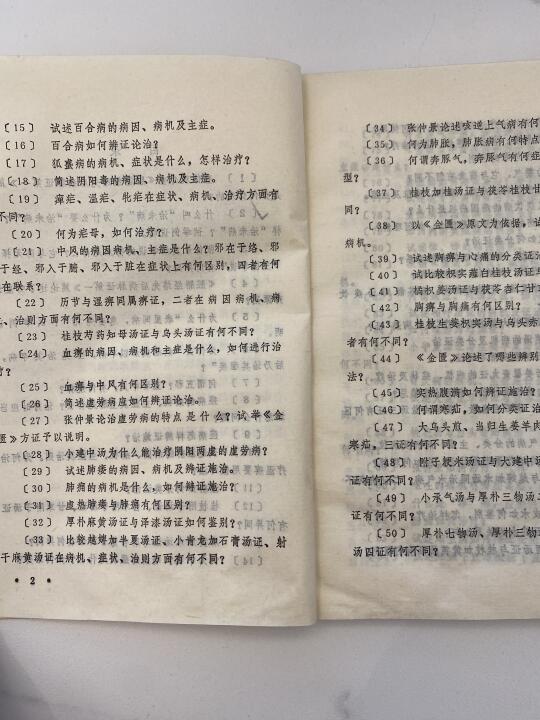 〔15〕 试述百合病的病因、病机及主症。
〔16〕 百合病如何辨证论治?
〔17〕 狐惑病的病机、症状是什么,怎样治疗?
〔18〕 简述阴阳毒的病因、病机及主症。
〔19〕 瘅疟、温疟、牝疟在症状、病机、治疗方面有
不同?
〔20〕 何为疟母,如何治疗?
〔21〕 中风的病因病机、主症是什么?邪在于络、邪
于经、邪入于腑、邪入于脏在症状上有何区别,四者有何
在联系?
〔22〕 历节与湿痹同属痹证,二者在病因病机、病
、治则方面有何不同?
〔23〕 桂枝芍药知母汤证与乌头汤证有何不同?
〔24〕 血痹的病因、病机和主症是什么,如何进行治
疗?
〔25〕 血痹与中风有何区别?
〔26〕 简述虚劳病应如何辨证论治。
〔27〕 张仲景论治虚劳病的特点是什么?试举《金
匮》方证予以说明。
〔28〕 小建中汤为什么能治疗阴阳两虚的虚劳病?
〔29〕 试述肺痿的病因、病机及辨证施治。
〔30〕 肺痈的病机是什么,如何辨证施治?
〔31〕 虚热肺痿与肺痈有何区别?
〔32〕 厚朴麻黄汤证与泽漆汤证如何鉴别?
〔33〕 比较越婢加半夏汤证、小青龙加石膏汤证、射
干麻黄汤证在病机、症状、治则方面有何不同?
• 2 •
〔34〕 张仲景论述咳逆上气病有何
〔35〕 何为肺胀,肺胀病有何特点
〔36〕 何谓奔豚气,奔豚气有何症
型?
〔37〕 桂枝加桂汤证与茯苓桂枝甘
同?
〔38〕 以《金匮》原文为依据,试
病机。
〔39〕 试述胸痹与心痛的分类证治
〔40〕 试比较枳实薤白桂枝汤证与
〔41〕 橘枳姜汤证与茯苓杏仁甘
〔42〕 胸痹与胸痛有何区别?
〔43〕 桂枝生姜枳实汤与乌头赤
者有何不同?
〔44〕 《金匮》论述了哪些辨别
法?
〔45〕 实热腹满如何辨证施治?
〔46〕 何谓寒疝,如何分类证治
〔47〕 大乌头煎、当归生姜羊肉
寒疝,三证有何不同?
〔48〕 附子粳米汤证与大建中汤
证有何不同?
〔49〕 小承气汤与厚朴三物汤
证有何不同?
〔50〕 厚朴七物汤、厚朴三物
汤四证有何不同?